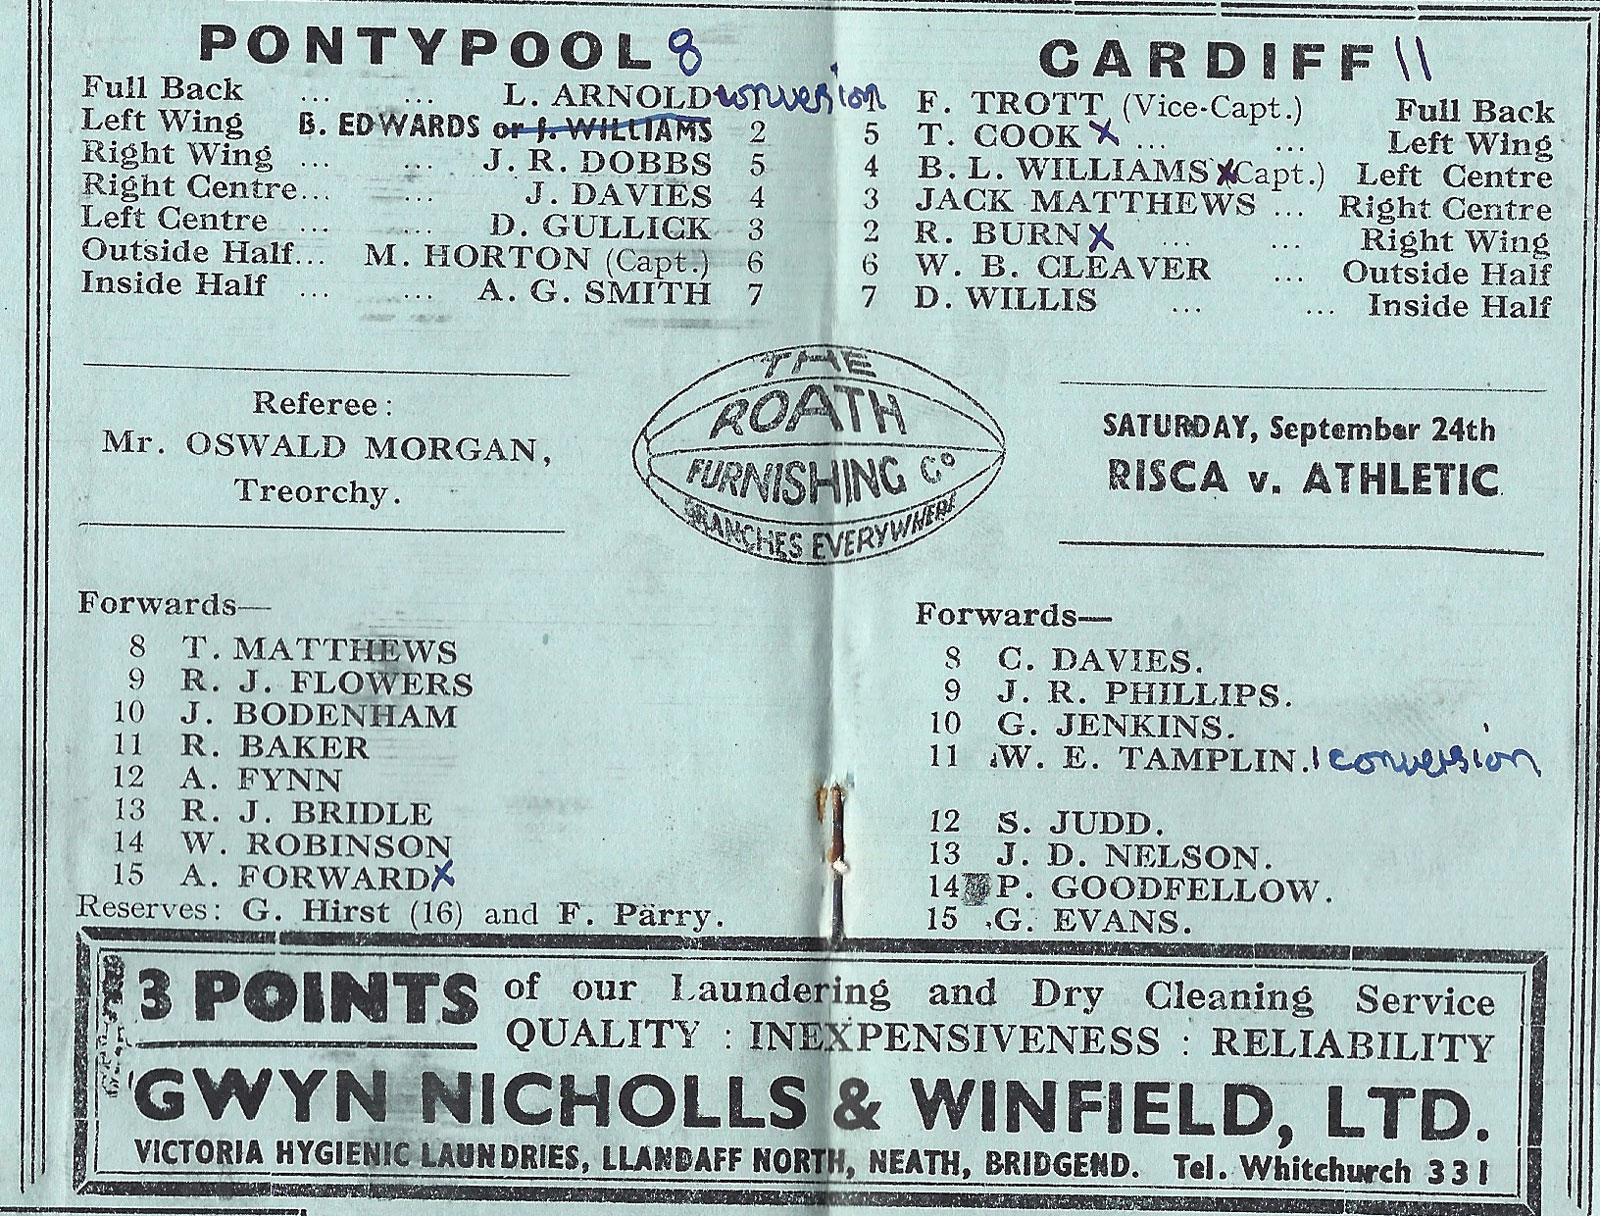 PONTYPOOL 8
Full Back ... ... L. ARNOLD conversion 1
Left Wing B. EDWARDS or J. WILLIAMS 2
Right Wing ... ... J. R. DOBBS 5
Right Centre... ... J. DAVIES 4
Left Centre ... ... D. GULLICK 3
Outside Half... M. HORTON (Capt.) 6
Inside Half ... ... A. G. SMITH 7
CARDIFF 11
F. TROTT (Vice-Capt.) Full Back
5 T. COOK X ... ... Left Wing
4 B. L. WILLIAMS X (Capt.) Left Centre
3 JACK MATTHEWS ... Right Centre
2 R. BURN X ... ... Right Wing
6 W. B. CLEAVER ... Outside Half
7 D. WILLIS ... ... Inside Half
Referee:
Mr. OSWALD MORGAN,
Treorchy.
THE
ROATH
FURNISHING Co
BRANCHES EVERYWHERE
SATURDAY, September 24th
RISCA v. ATHLETIC
Forwards—
8 T. MATTHEWS
9 R. J. FLOWERS
10 J. BODENHAM
11 R. BAKER
12 A. FYNN
13 R. J. BRIDLE
14 W. ROBINSON
15 A. FORWARD X
Reserves: G. Hirst (16) and F. Parry.
Forwards—
8 C. DAVIES.
9 J. R. PHILLIPS.
10 G. JENKINS.
11 W. E. TAMPLIN. 1 conversion
12 S. JUDD.
13 J. D. NELSON.
14 P. GOODFELLOW.
15 G. EVANS.
3 POINTS of our Laundering and Dry Cleaning Service
QUALITY : INEXPENSIVENESS : RELIABILITY
GWYN NICHOLLS & WINFIELD, LTD.
VICTORIA HYGIENIC LAUNDRIES, LLANDAFF NORTH, NEATH, BRIDGEND. Tel. Whitchurch 331